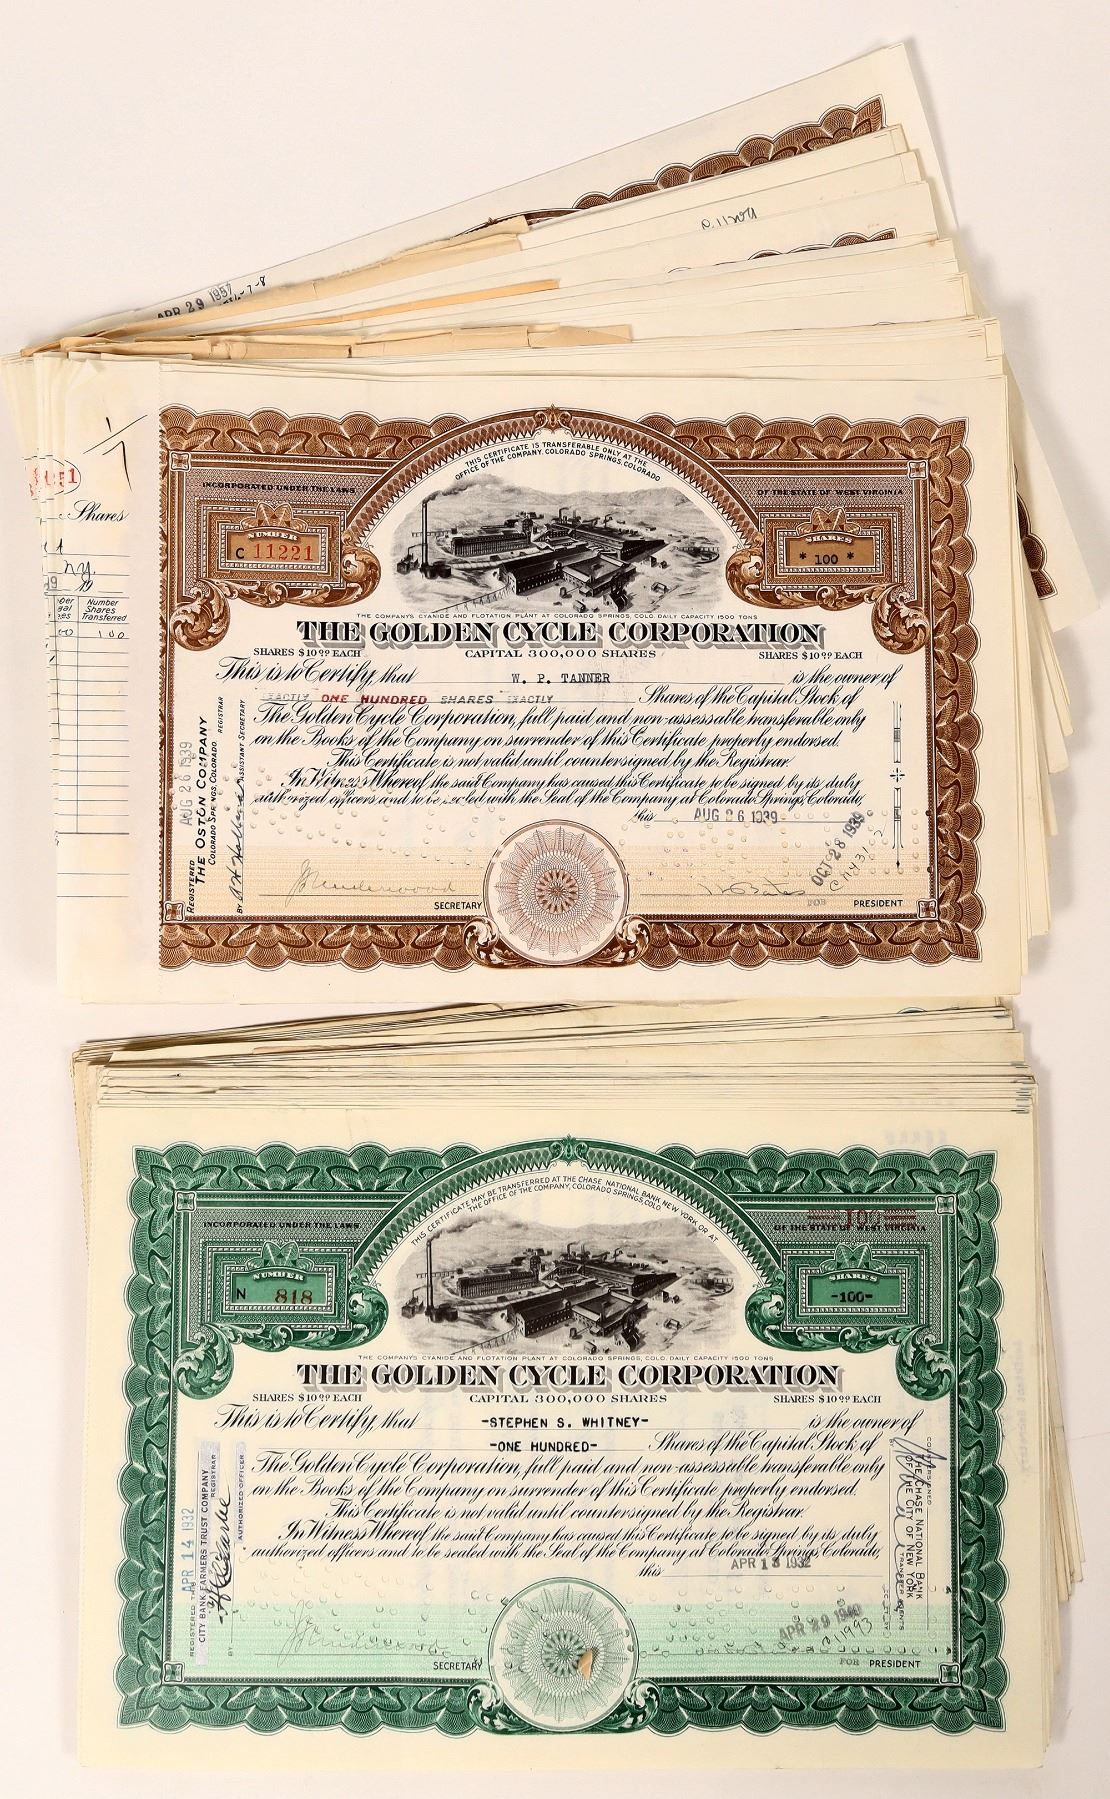 APR 29 1957
-7-8
51
Shares
ny.
Number
Shares
Transferred
100
THIS CERTIFICATE IS TRANSFERABLE ONLY AT THE
OFFICE OF THE COMPANY, COLORADO SPRINGS, COLORADO
INCORPORATED UNDER THE LAWS
OF THE STATE OF WEST VIRGINIA
NUMBER
C 11221
SHARES
* 100 *
THE COMPANY'S CYANIDE AND FLOTATION PLANT AT COLORADO SPRINGS, COLO. DAILY CAPACITY 1500 TONS
THE GOLDEN CYCLE CORPORATION
SHARES $10.00 EACH
CAPITAL 300,000 SHARES
SHARES $10.00 EACH
This is to Certify, that W. P. TANNER is the owner of
EXACTLY ONE HUNDRED SHARES EXACTLY Shares of the Capital Stock of
The Golden Cycle Corporation, full paid and non-assessable transferable only
on the Books of the Company on surrender of this Certificate properly endorsed.
This Certificate is not valid until countersigned by the Registrar.
In Witness Whereof, the said Company has caused this Certificate to be signed by its duly
authorized officers and to be sealed with the Seal of the Company at Colorado Springs, Colorado,
this AUG 26 1939
REGISTERED AUG 26 1939
THE OSTON COMPANY
COLORADO SPRINGS, COLORADO. REGISTRAR
BY ASSISTANT SECRETARY
OCT 28 1939
SECRETARY
FOR PRESIDENT
THIS CERTIFICATE MAY BE TRANSFERRED AT THE CHASE NATIONAL BANK NEW YORK OR AT
THE OFFICE OF THE COMPANY, COLORADO SPRINGS, COLO.
INCORPORATED UNDER THE LAWS
100
OF THE STATE OF WEST VIRGINIA
NUMBER
N 818
SHARES
-100-
THE COMPANY'S CYANIDE AND FLOTATION PLANT AT COLORADO SPRINGS, COLO. DAILY CAPACITY 1500 TONS
THE GOLDEN CYCLE CORPORATION
SHARES $10.00 EACH
CAPITAL 300,000 SHARES
SHARES $10.00 EACH
This is to Certify, that -STEPHEN S. WHITNEY- is the owner of
-ONE HUNDRED- Shares of the Capital Stock of
The Golden Cycle Corporation, full paid and non-assessable transferable only
on the Books of the Company on surrender of this Certificate properly endorsed.
This Certificate is not valid until countersigned by the Registrar.
In Witness Whereof, the said Company has caused this Certificate to be signed by its duly
authorized officers and to be sealed with the Seal of the Company at Colorado Springs, Colorado,
this APR 13 1932
REGISTERED APR 14 1932
CITY BANK FARMERS TRUST COMPANY
REGISTRAR
BY AUTHORIZED OFFICER
COUNTERSIGNED
THE CHASE NATIONAL BANK
OF THE CITY OF NEW YORK
TRANSFER AGENTS
APR 29 1940
SECRETARY
FOR PRESIDENT